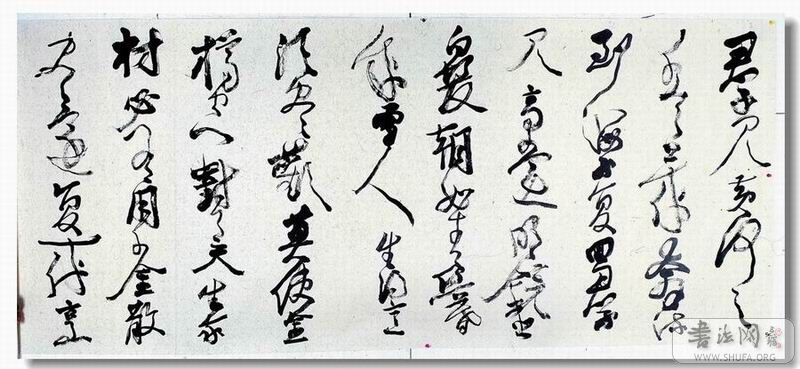 君不见黄河之
水天上来奔流
到海不复回君不
见高堂明镜悲
白髮朝如青丝暮
成雪人生得意
须尽歡莫使金
樽空對月天生我
材必有用千金散
尽还复来烹
書法网
WWW.SHUFA.ORG